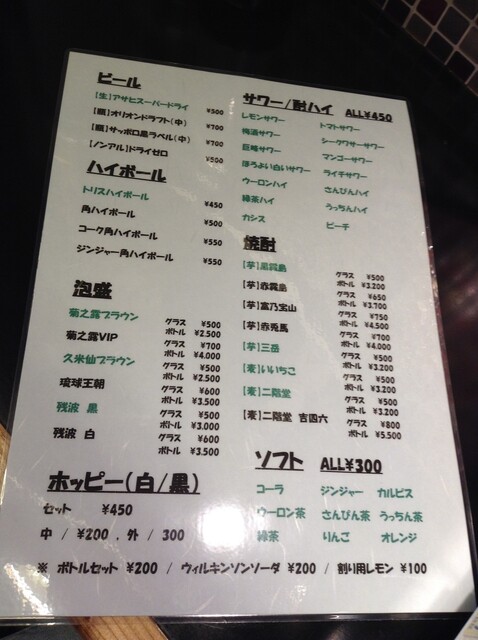 ビール
【生】アサヒスーパードライ ¥500
【瓶】オリオンドラフト(中) ¥700
【瓶】サッポロ黒ラベル(中) ¥700
【ノンアル】ドライゼロ ¥500
ハイボール
トリスハイボール ¥450
角ハイボール ¥500
コーク角ハイボール ¥550
ジンジャー角ハイボール ¥550
泡盛
菊之露ブラウン グラス ¥500
ボトル ¥2.500
菊之露VIP グラス ¥700
ボトル ¥4.000
久米仙ブラウン グラス ¥500
ボトル ¥2.500
琉球王朝 グラス ¥600
ボトル ¥3.500
残波 黒 グラス ¥500
ボトル ¥3.000
残波 白 グラス ¥600
ボトル ¥3.500
サワー/酎ハイ ALL¥450
レモンサワー トマトサワー
梅酒サワー シークワサーサワー
巨峰サワー マンゴーサワー
ほろよい白いサワー ライチサワー
ウーロンハイ さんぴんハイ
緑茶ハイ うっちんハイ
カシス ピーチ
焼酎
【芋】黒霧島 グラス ¥500
ボトル ¥3.200
【芋】赤霧島 グラス ¥650
ボトル ¥3.700
【芋】富乃宝山 グラス ¥750
ボトル ¥4.500
【芋】赤兎馬 グラス ¥700
ボトル ¥4.000
【芋】三岳 グラス ¥500
ボトル ¥3.200
【麦】いいちこ グラス ¥500
ボトル ¥3.200
【麦】二階堂 グラス ¥500
ボトル ¥3.200
【麦】二階堂 吉四六 グラス ¥800
ボトル ¥5.500
ホッピー(白/黒)
セット ¥450
中 / ¥200 . 外 / 300
ソフト ALL¥300
コーラ ジンジャー カルピス
ウーロン茶 さんぴん茶 うっちん茶
緑茶 りんご オレンジ
※ ボトルセット ¥200 / ウィルキンソンソーダ ¥200 / 割り用レモン ¥100